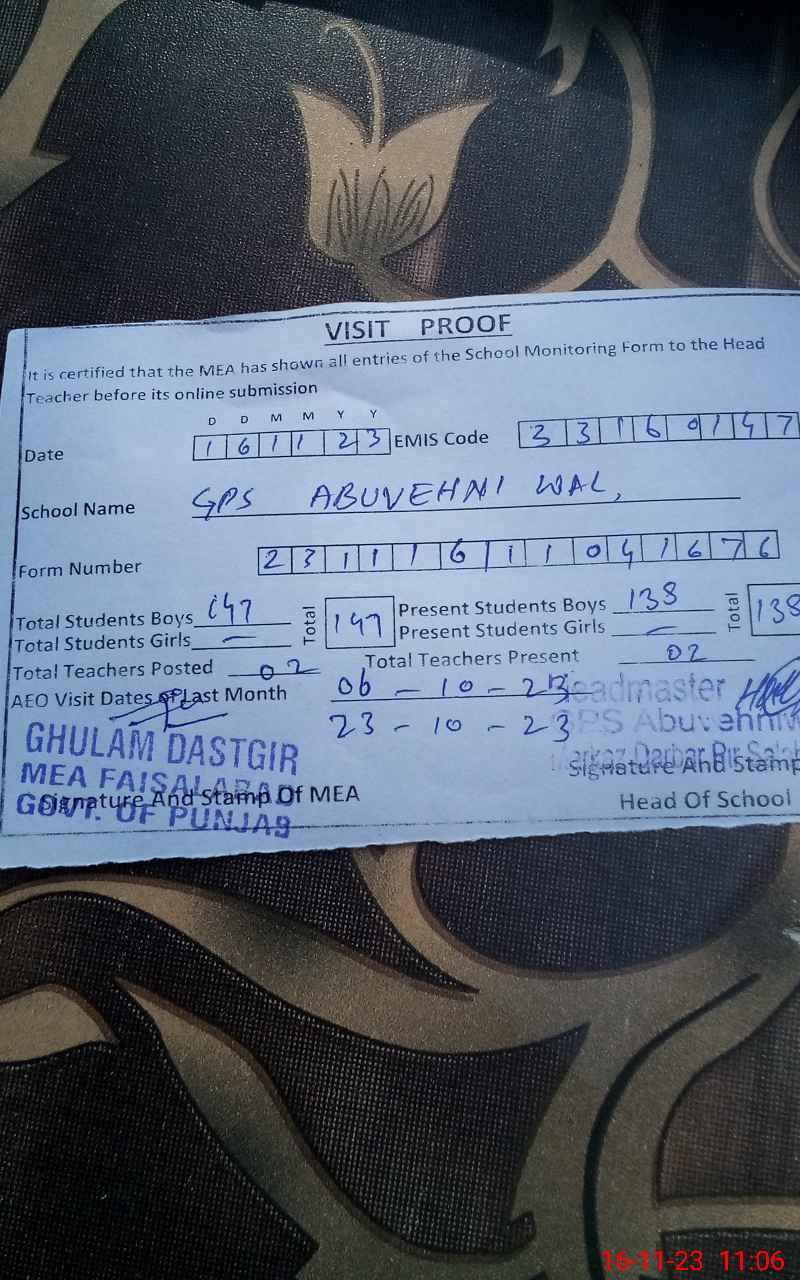 VISIT PROOF
It is certified that the MEA has shown all entries of the School Monitoring Form to the Head
Teacher before its online submission
D D M M Y Y
Date 1 6 1 1 2 3 EMIS Code 3 3 1 6 0 1 4 7
School Name GPS ABUVEHNI WAL,
Form Number 2 3 1 1 1 6 1 1 0 4 1 6 7 6
Total Students Boys 147 Total 147 Present Students Boys 138 Total 138
Total Students Girls — Present Students Girls —
Total Teachers Posted 02 Total Teachers Present 02
AEO Visit Dates of Last Month 06 - 10 - 23 Headmaster
23 - 10 - 23 GPS Abuvehni
GHULAM DASTGIR Markaz Darbar Pir
MEA FAISALABAD Signature And Stamp
Signature And Stamp Of MEA Head Of School
GOVT. OF PUNJAB
16-11-23 11:06